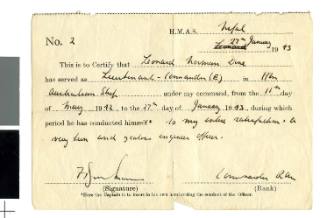 H.M.A.S. Nepal
No. 2 27th January 1943
This is to Certify that Leonard Norman
has served as Lieutenant-Commander (E) in this
under my command, from the 11th day
of May 1942, to the 27th day of January 1943, during which
period he has conducted himself* to my entire satisfaction. A
very keen and zealous engineer officer.
Commander RAN
(Signature) (Rank)
*Here the Captain is to insert in his own handwriting the conduct of the Officer.